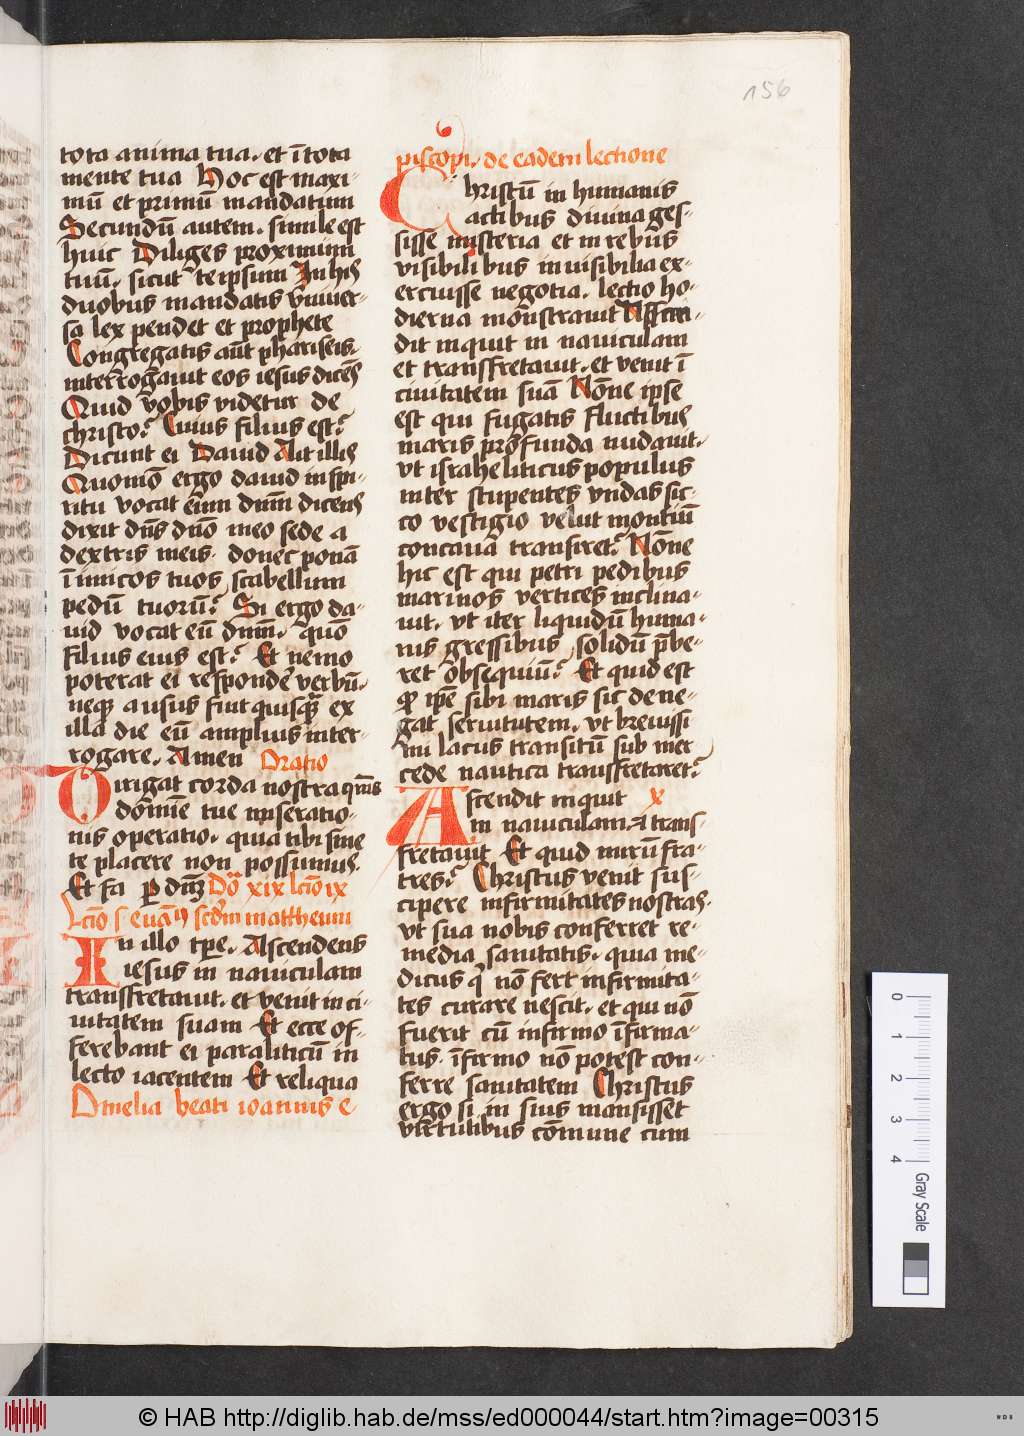 156
tota anima tua. et ī tota
mente tua Hoc est maxi-
mū et primū mandatum
Secundū autem. simile est
huic Diliges proximum
tuū. sicut te ipsum In hiis
duobus mandatis vniuer-
sa lex pendet et prophete
Congregatis aūt phariseis.
interrogauit eos iesus dicēs
Quid vobis videtur de
christo? Cuius filius est?
Dicunt ei Dauid Ait illis
Quomō ergo dauid in spi-
ritu vocat eum dnm dicens
dixit dns dno meo sede a
dextris meis. donec ponā
īimicos tuos scabellum
pedū tuorū? Si ergo da-
uid vocat eū dnm. quō
filius eius est? Et nemo
poterat ei respondē verbū.
neqꝫ ausus fuit quisqꝫ ex
illa die eū amplius inter-
rogare. Amen Oratio
Dirigat corda nostra qums
domīe tue miseratio-
nis operatio. quia tibi sine
te placere non possumus.
Et fa p dnꝫ Dō xix lcio ix
Lcio s evan scdm mattheum
In illo tpe. Ascendens
iesus in nauiculam
transfretauit. et venit in ci-
uitatem suam Et ecce of-
ferebant ei paraliticū in
lecto iacentem Et reliqua
Omelia beati ioannis e
piscopi. de eadem lectione
Christū in humanis
actibus diuina ges-
sisse misteria et in rebus
visibilibus inuisibilia ex-
ercuisse negotia. lectio ho-
dierna monstrauit Ascen-
dit inquit in nauiculam
et transfretauit. et venit ī
ciuitatem suā Nōne ipse
est qui fugatis fluctibus
maris profunda nudauit.
vt israheliticus populus
inter stupentes vndas sic-
co vestigio velut montiū
concaua transiret? Nōne
hic est qui petri pedibus
marinos vertices inclina-
uit. vt iter liquidū huma-
nis gressibus solidū pbe-
ret obsequiū? Et quid est
qp ipe sibi maris sic dene-
gat seruitutem. vt breuissi
mi lacus transitū sub mer
cede nautica transfretaret?
Ascendit inquit x
in nauiculam. et trans-
fretauit Et quid mirū fra-
tres? Christus venit sus-
cipere infirmitates nostras.
vt sua nobis conferret re-
media sanitatis. quia me-
dicus q nō fert infirmita-
tes curare nescit. et qui nō
fuerit cū infirmo īfirma-
tus. īfirmo nō potest con-
ferre sanitatem Christus
ergo si in suis mansisset
virtutibus cōmune cum
0
1
2
3
4
Gray Scale
© HAB http://diglib.hab.de/mss/ed000044/start.htm?image=00315